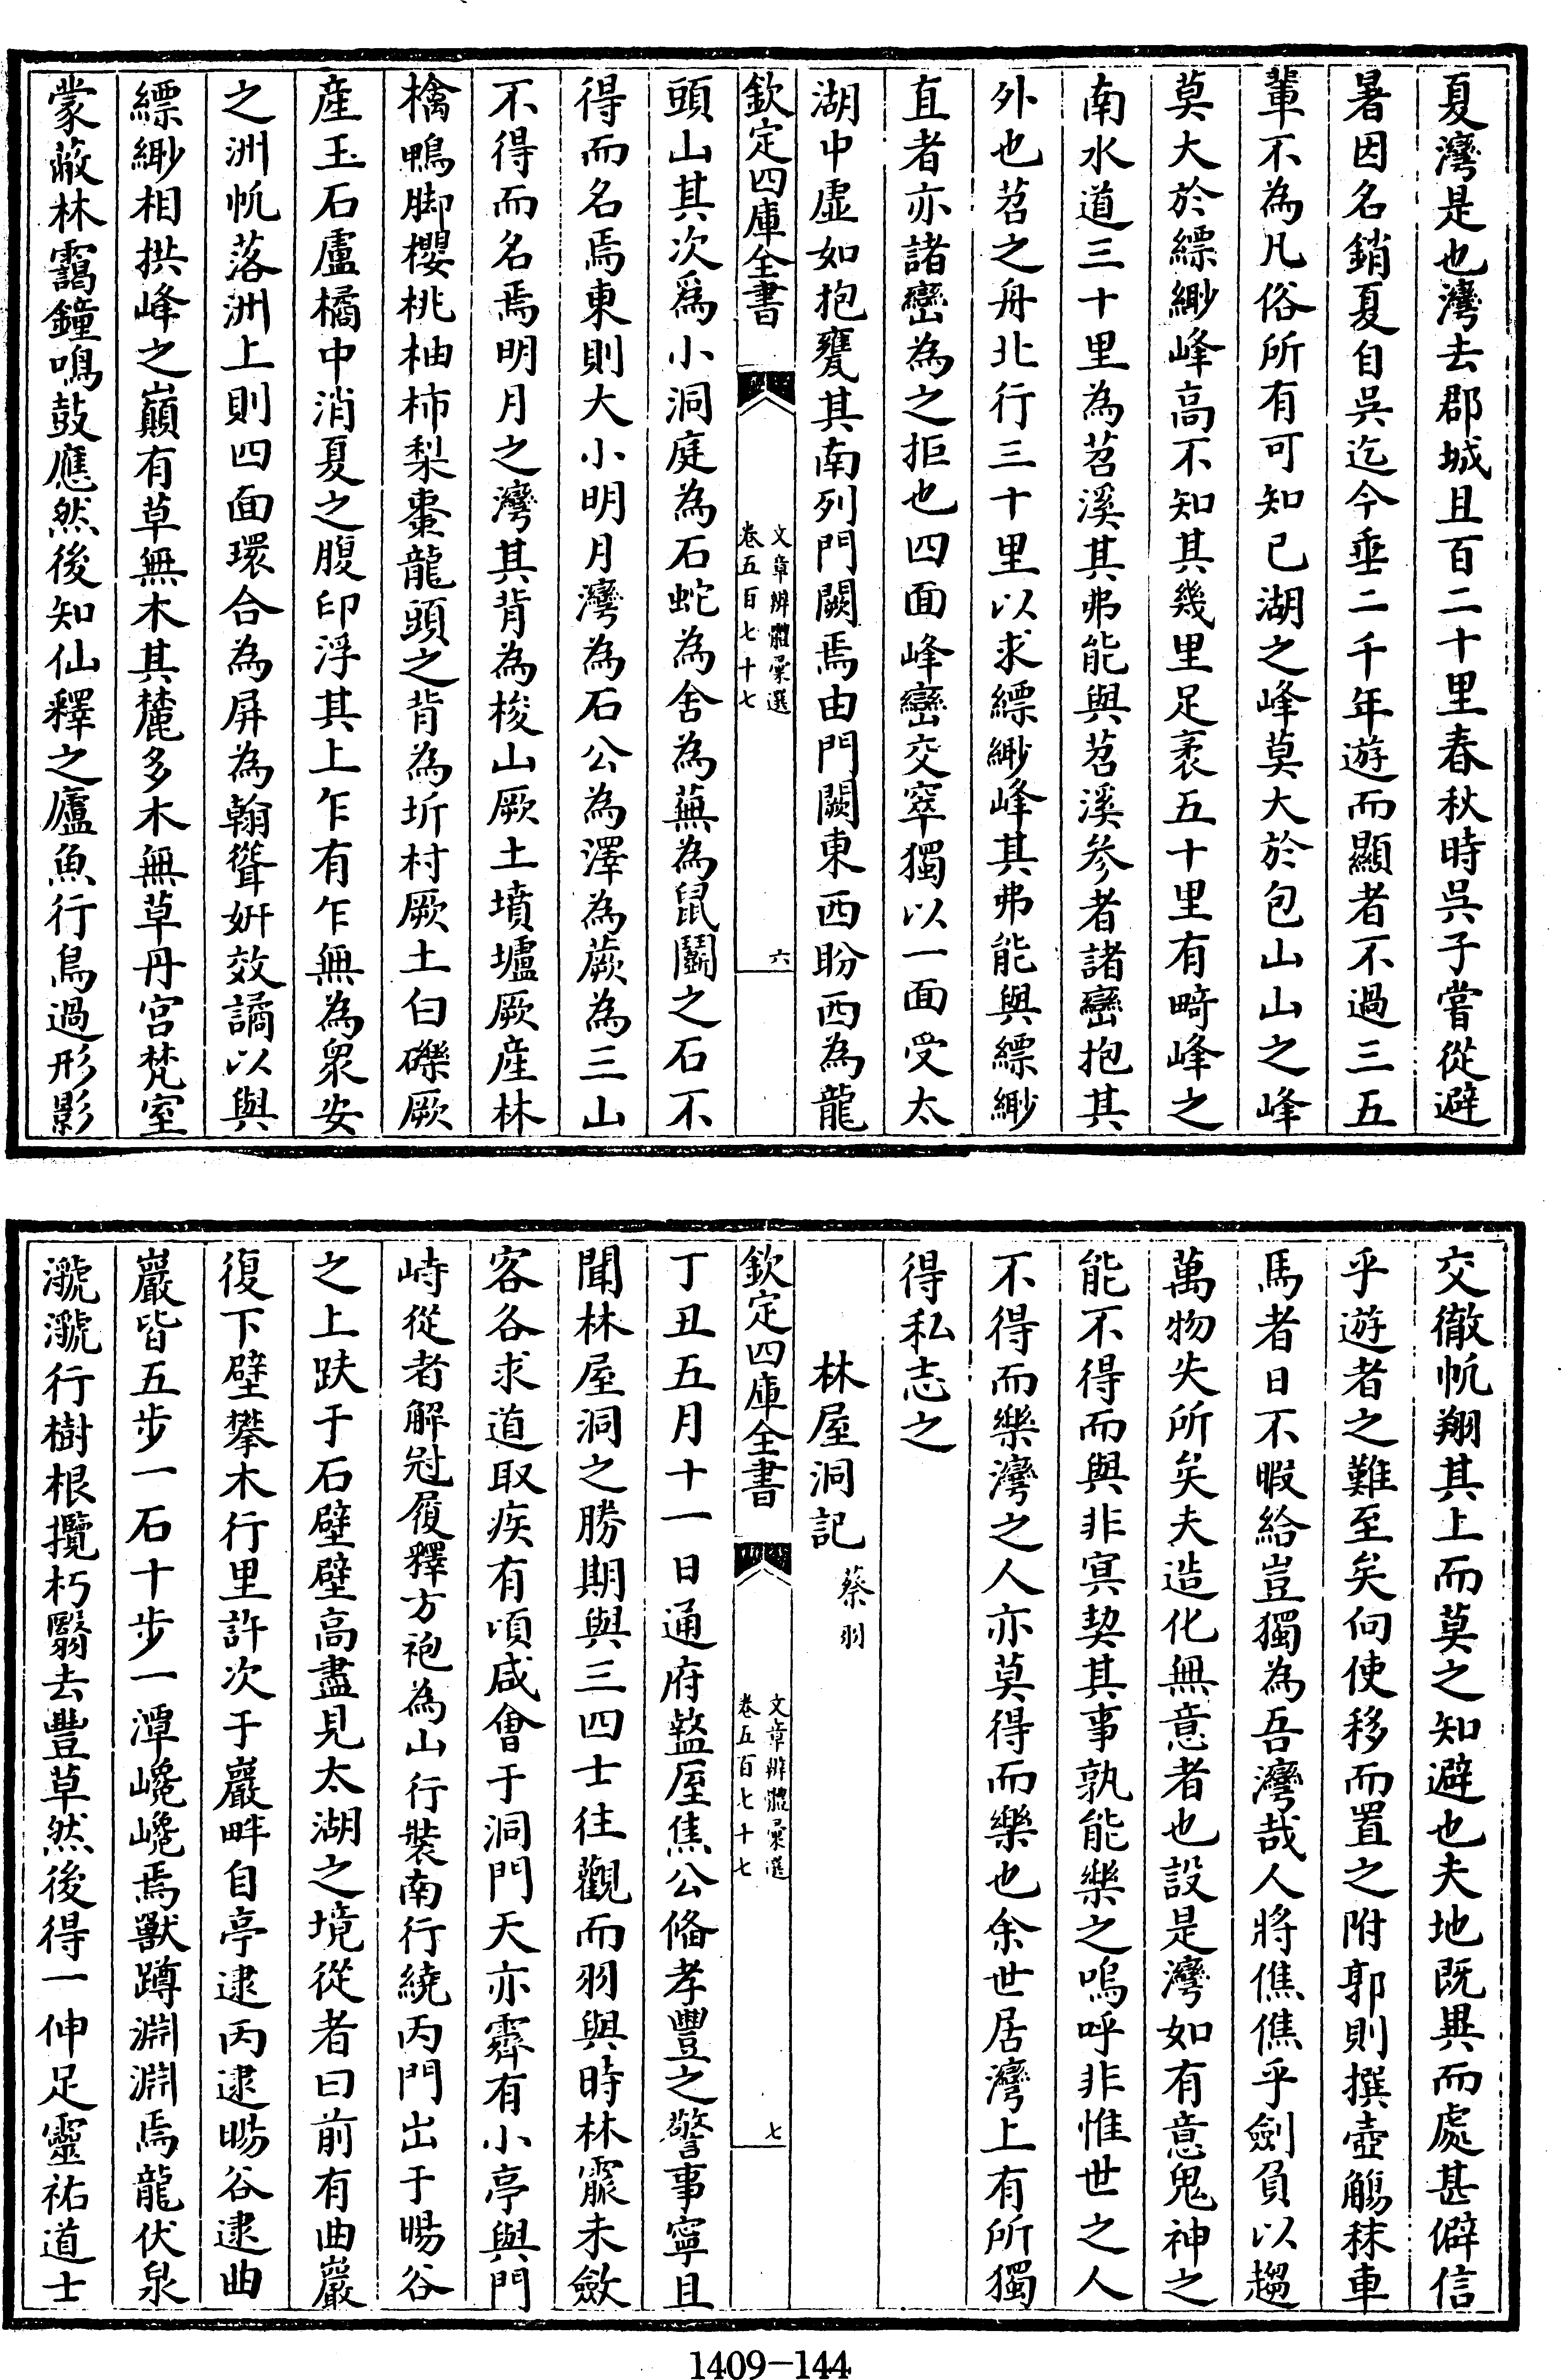 夏灣是也灣去郡城且百二十里春秋時吳子嘗從避
暑因名銷夏自吳迄今垂二千年遊而顯者不過三五
輩不為凡俗所有可知已湖之峰莫大於包山山之峰
莫大於縹緲峰高不知其幾里足袤五十里有畸峰之
南水道三十里為苕溪其弗能與苕溪參者諸巒抱其
外也苕之舟北行三十里以求縹緲峰其弗能與縹緲
直者亦諸巒為之拒也四面峰巒交窣獨以一面受太
湖中虛如抱甕其南列門闕焉由門闕東西盼西為龍
欽定四庫全書
文章辨體彙選
卷五百七十七
六
頭山其次爲小洞庭為石蛇為舍為蕪為鼠鬬之石不
得而名焉東則大小明月灣為石公為澤為蕨為三山
不得而名焉明月之灣其背為梭山厥土墳壚厥產林
檎鴨脚櫻桃柚柿梨棗龍頭之背為圻村厥土白礫厥
產玉石盧橘中消夏之腹印浮其上乍有乍無為衆安
之洲帆落洲上則四面環合為屏為翰聳姸效譎以與
縹緲相拱峰之巔有草無木其麓多木無草丹宮梵室
蒙蔽林靄鐘鳴鼓應然後知仙釋之廬魚行鳥過形影
交徹帆翔其上而莫之知避也夫地既異而處甚僻信
乎遊者之難至矣向使移而置之附郭則撰壺觴秣車
馬者日不暇給豈獨為吾灣哉人將僬僬乎劍負以趨
萬物失所矣夫造化無意者也設是灣如有意鬼神之
能不得而與非冥契其事孰能樂之嗚呼非惟世之人
不得而樂灣之人亦莫得而樂也余世居灣上有所獨
得私志之
林屋洞記 蔡羽
欽定四庫全書
文章辨體彙選
卷五百七十七
七
丁丑五月十一日通府盩厔焦公脩孝豐之警事寧且
聞林屋洞之勝期與三四士往觀而羽與時林霡未斂
客各求道取疾有頃咸會于洞門天亦霽有小亭與門
峙從者解冠履釋方袍為山行裝南行繞丙門出于暘谷
之上趺于石壁壁高盡見太湖之境從者曰前有曲巖
復下壁攀木行里許次于巖畔自亭逮丙逮暘谷逮曲
巖皆五步一石十步一潭巉巉焉獸蹲淵淵焉龍伏泉
㶁㶁行樹根攬朽翳去豐草然後得一伸足靈祐道士
1409-144